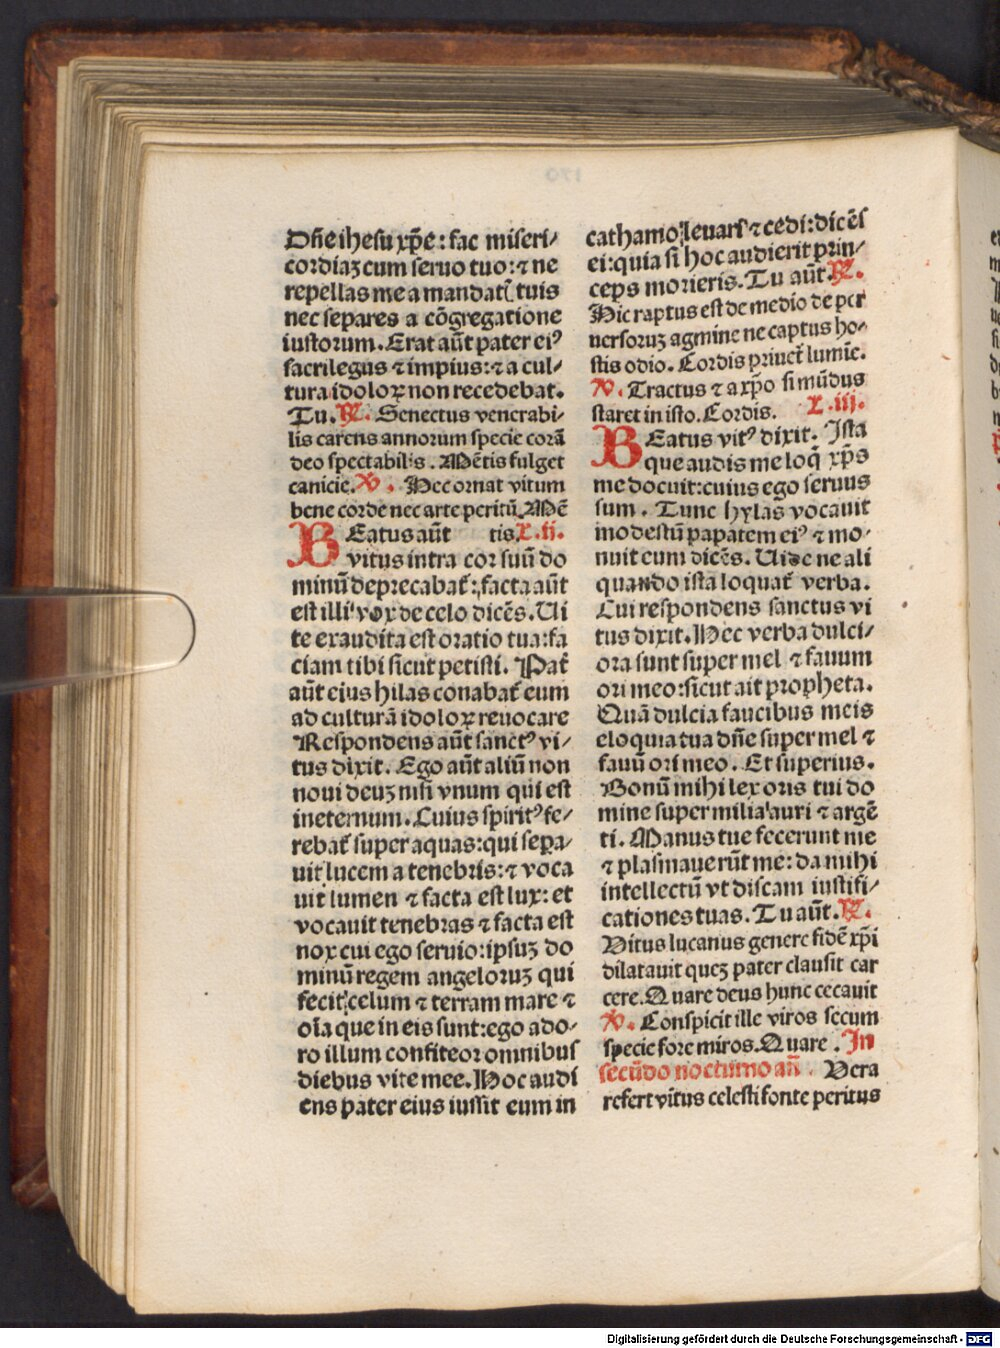 Dñe ihesu xp̄e: fac miseri/
cordiaꝫ cum seruo tuo: ⁊ ne
repellas me a mandatꝭ tuis
nec separes a cōgregatione
iustorum. Erat aūt pater eiꝰ
sacrilegus ⁊ impius: ⁊ a cul/
tura idoloꝝ non recedebat.
Tu. ℟. Senectus venerabi-
lis carens annorum specie corā
deo spectabilis. Mētis fulget
canicie. ℣. Hec ornat vitum
bene corde nec arte peritū. Mē
BEatus aūt tis. L. ii.
vitus intra cor suū do
minū deprecabat᷑: facta aūt
est illi vox de celo dicēs. Ui
te exaudita est oratio tua: fa
ciam tibi sicut petisti. Pat᷑
aūt eius hilas conabat᷑ eum
ad culturā idoloꝝ reuocare
Respondens aūt sanctꝰ vi/
tus dixit. Ego aūt aliū non
noui deuꝫ nisi vnum qui est
ineternum. Cuius spiritꝰ fe/
rebat᷑ super aquas: qui sepa/
uit lucem a tenebris: ⁊ voca
uit lumen ⁊ facta est lux: et
vocauit tenebras ⁊ facta est
nox cui ego seruio: ipsuꝫ do
minū regem angeloruꝫ qui
fecit celum ⁊ terram mare ⁊
oīa que in eis sunt: ego ado-
ro illum confiteor omnibus
diebus vite mee. Hoc audi
ens pater eius iussit eum in
cathamo leuari ⁊ cedi: dicēs
ei: quia si hoc audierit prin/
ceps morieris. Tu aūt. ℟.
Hic raptus est de medio de per
uersoruꝫ agmine ne captus ho-
stis odio. Cordis priuet᷑ lumīe.
℣. Tractus ⁊ a xp̄o si mūdus
staret in isto. Cordis. L. iii.
BEatus vitꝰ dixit. Ista
que audis me loq̄ xp̄s
me docuit: cuius ego seruus
sum. Tunc hylas vocauit
modestū papatem eiꝰ ⁊ mo-
nuit eum dicēs. Uide ne ali
quando ista loquat᷑ verba.
Cui respondens sanctus vi
tus dixit. Hec verba dulci/
ora sunt super mel ⁊ fauum
ori meo: sicut ait propheta.
Quā dulcia faucibus meis
eloquia tua dñe super mel ⁊
fauū ori meo. Et superius.
Bonū mihi lex oris tui do
mine super milia auri ⁊ argē
ti. Manus tue fecerunt me
⁊ plasmauerūt me: da mihi
intellectū vt discam iustifi/
cationes tuas. Tu aūt. ℟.
Vitus lucanus genere fidē xp̄i
dilatauit queꝫ pater clausit car
cere. Quare deus hunc cecauit
℣. Conspicit ille viros secum
specie fore miros. Quare. In
secūdo nocturno añ. Vera
refert vitus celesti fonte peritus
Digitalisierung gefördert durch die Deutsche Forschungsgemeinschaft - DFG